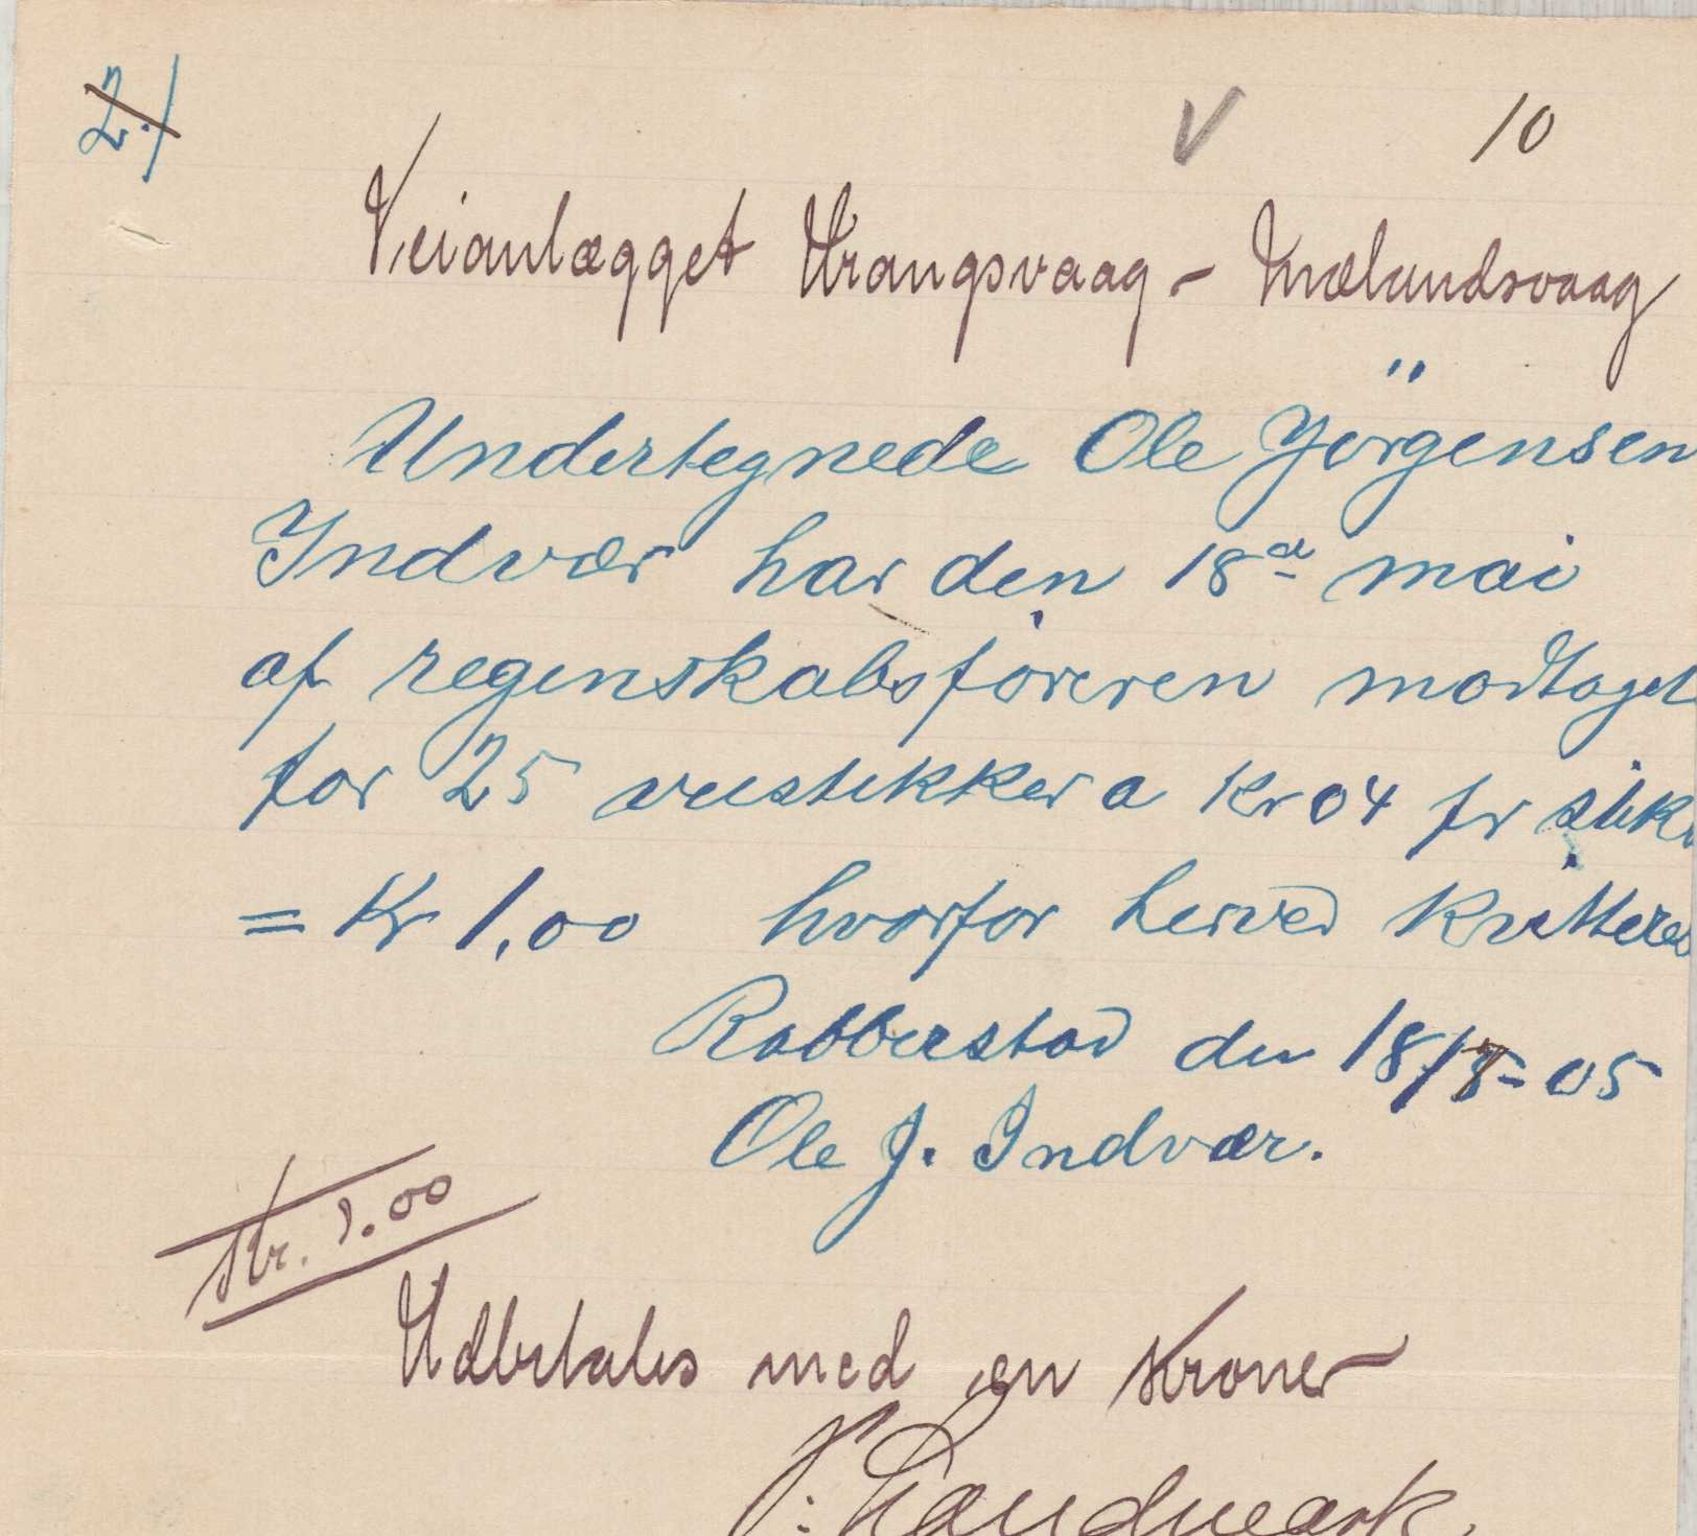 2./
V 10
Veianlægget Vrangsvaag - Mælandsvaag
Undertegnede Ole Jörgensen
Indvær har den 18de mai
af regnskabsføreren modtaget
for 25 veistikker a Kr 04 pr stik
= Kr 1,00 hvorfor herved Kvitteres
Rabbestad den 18/ - 05
Ole J. Indvær.
Kr. 1.00
Udbetales med en Krone